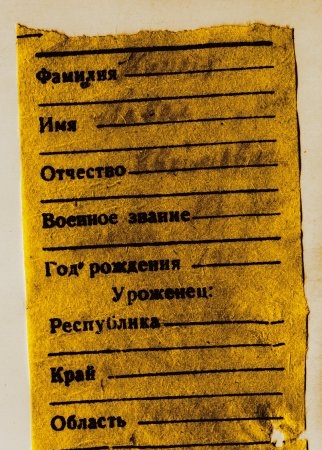 Фамилия
Имя
Отчество
Военное звание
Год рождения
Уроженец:
Республика
Край
Область